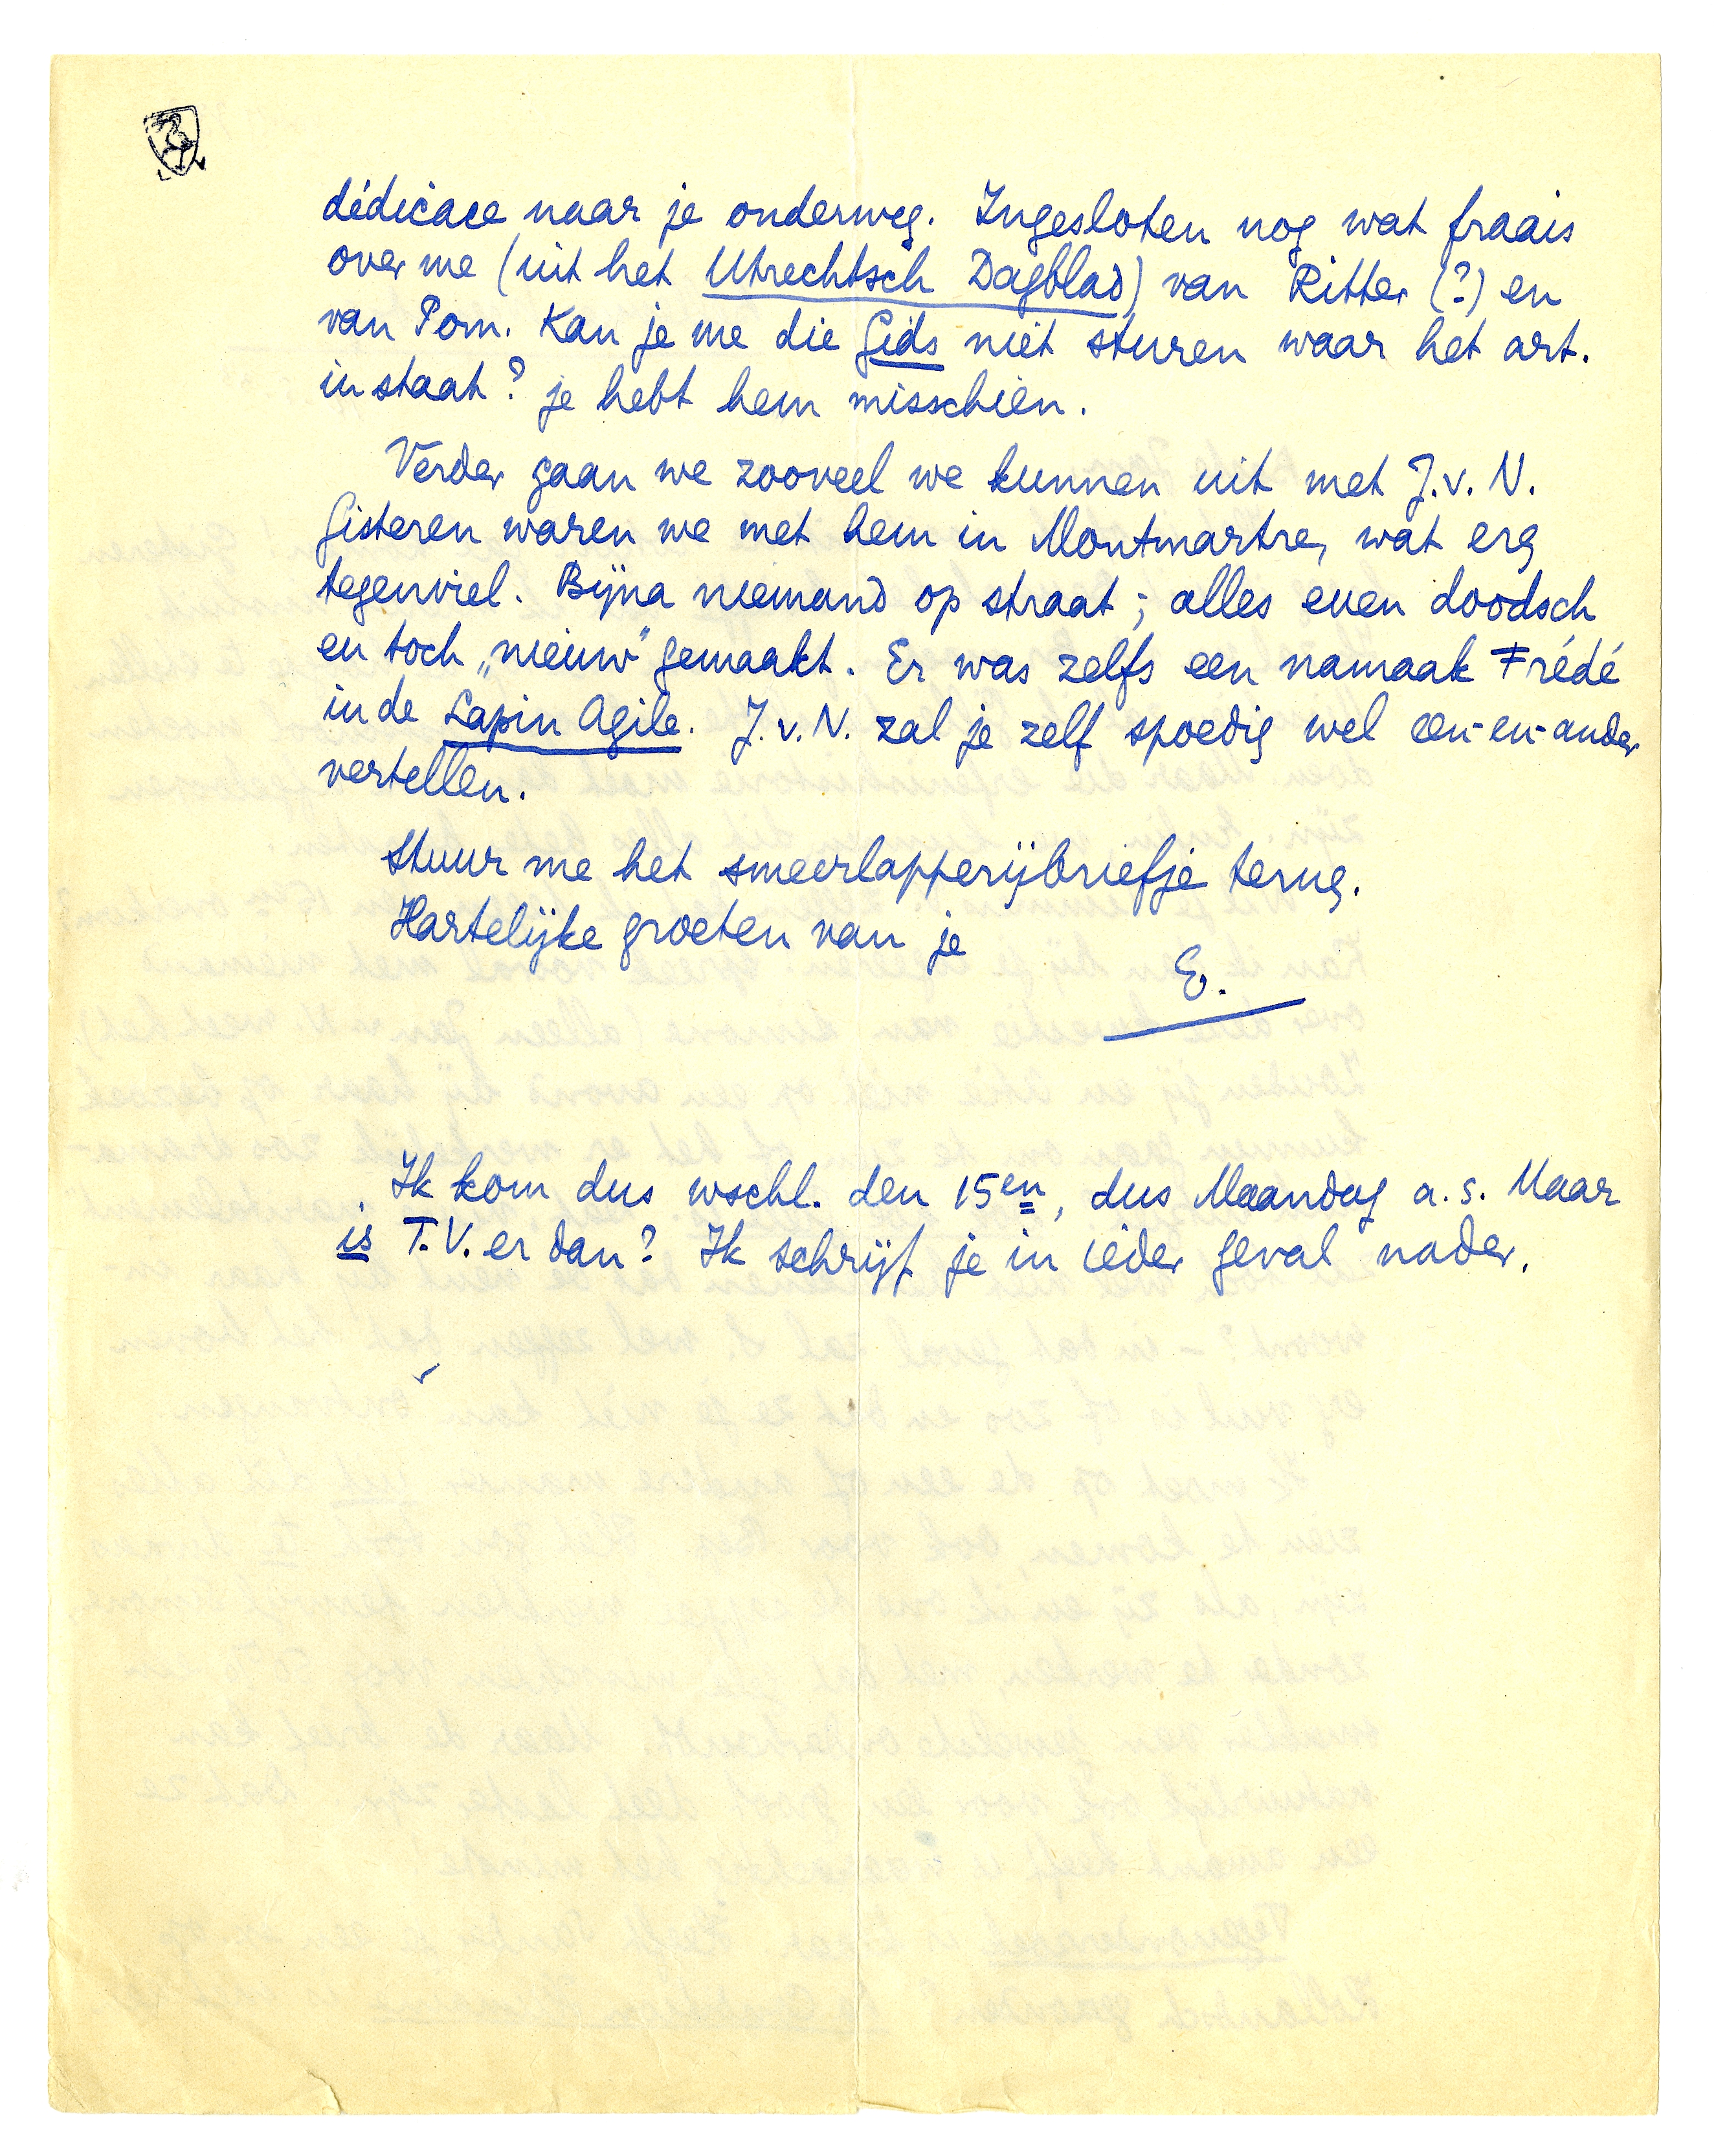 dédicace naar je onderweg. Ingesloten nog wat fraais
over me (uit het Utrechtsch Dagblad) van Ritter (?) en
van Pom. Kan je me die Gids niet sturen waar het art.
in staat? je hebt hem misschien.
Verder gaan we zooveel we kunnen uit met J.v.N.
Gisteren waren we met hem in Montmartre, wat erg
tegenviel. Bijna niemand op straat; alles even doodsch
en toch „nieuw" gemaakt. Er was zelfs een namaak Frédé
in de Lapin Agile. J.v.N. zal je zelf spoedig wel een-en-ander
vertellen.
Stuur me het smeerlapperijbriefje terug.
Hartelijke groeten van je
E.
Ik kom dus wschl. den 15en, dus Maandag a.s. Maar
is T.V. er dan? Ik schrijf je in ieder geval nader.